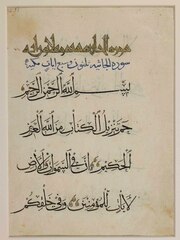 سورة الجاثية ثلثون وسبع ايات مكية
بسم الله الرحمن الرحيم
حم تنزيل الكتاب من الله العزيز
الحكيم ان في السموات والارض
لايات للمؤمنين وفي خلقكم